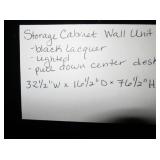 Storage Cabinet Wall Unit
- black lacquer
- lighted
- pull down center desk
32 1/2" W x 16 1/2" D x 76 1/2" H